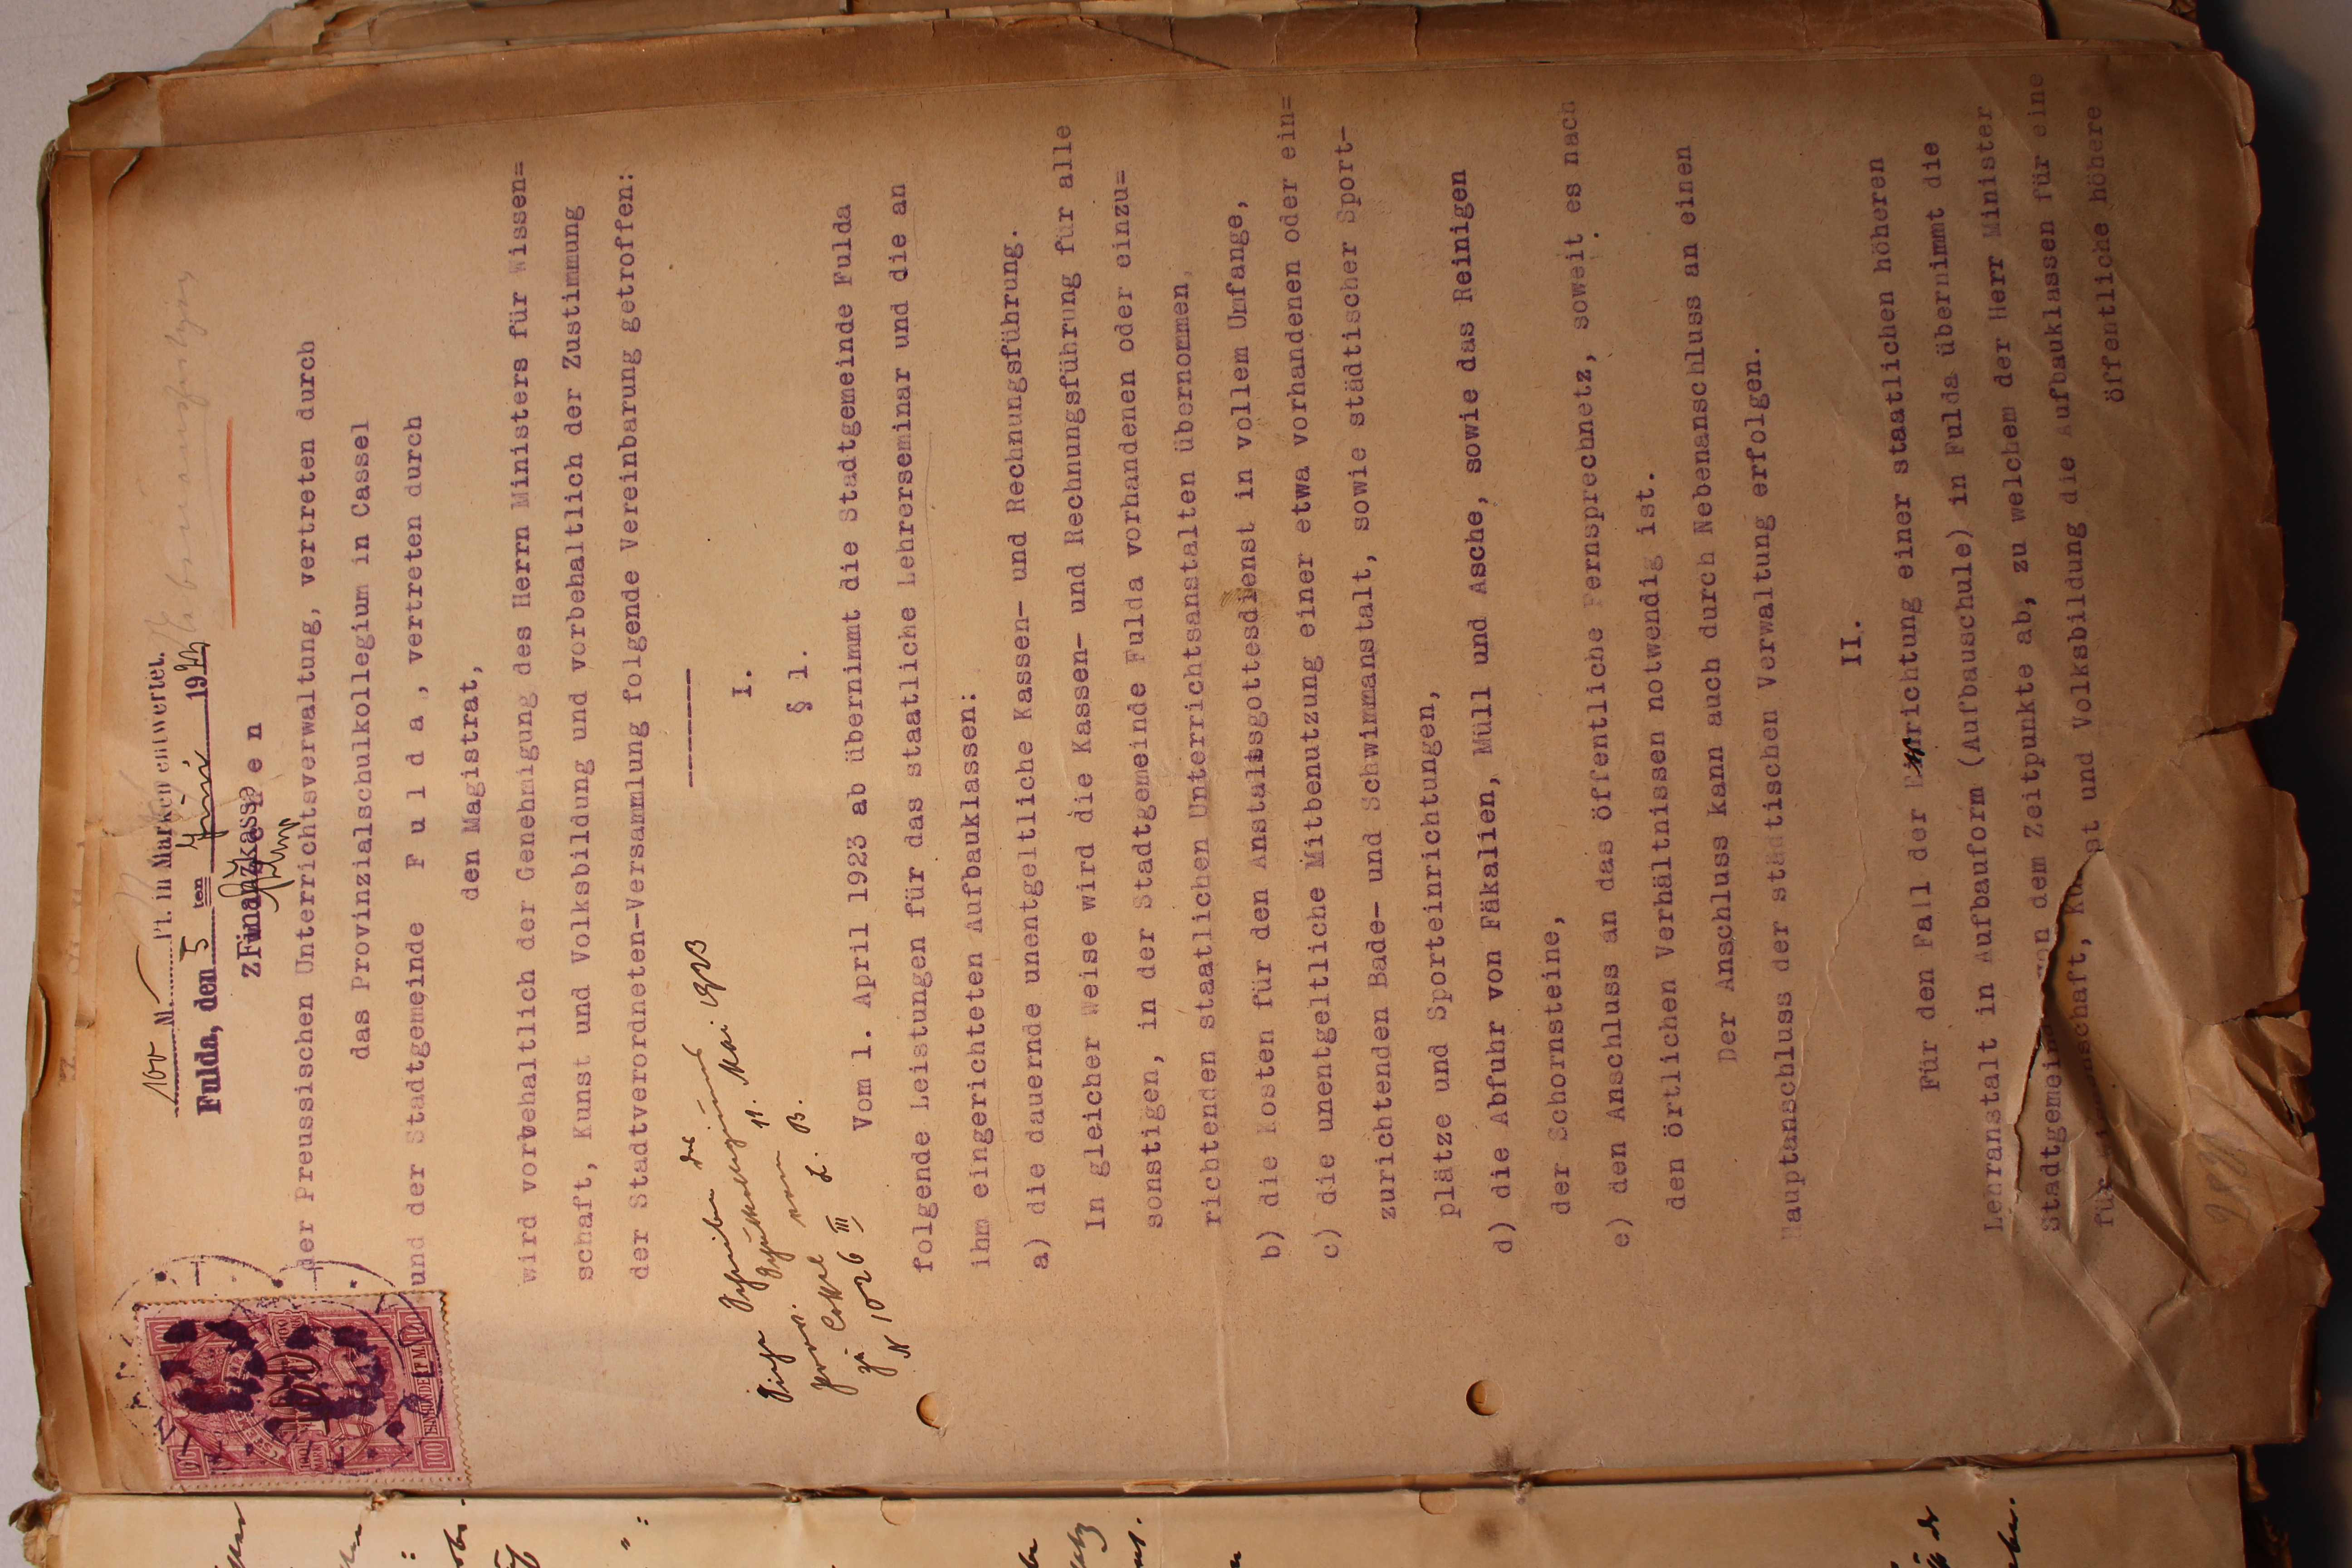 100 M. Pf. in Marken entwertet.
Fulda, den 5 ten Juni 1923
Finanzkasse
Zwischen
der Preussischen Unterrichtsverwaltung, vertreten durch
das Provinzialschulkollegium in Cassel
und der Stadtgemeinde F u l d a , vertreten durch
den Magistrat,
wird vorbehaltlich der Genehmigung des Herrn Ministers für Wissen=
schaft, Kunst und Volksbildung und vorbehaltlich der Zustimmung
der Stadtverordneten-Versammlung folgende Vereinbarung getroffen:
-------
Siehe Schreiben des
Prov. Schulkollegiums
zu Cassel vom 11. Mai 1923
N 1026 III L. B.
I.
§ 1.
Vom 1. April 1923 ab übernimmt die Stadtgemeinde Fulda
folgende Leistungen für das staatliche Lehrerseminar und die an
ihm eingerichteten Aufbauklassen:
a) die dauernde unentgeltliche Kassen- und Rechnungsführung.
In gleicher Weise wird die Kassen- und Rechnungsführung für alle
sonstigen, in der Stadtgemeinde Fulda vorhandenen oder einzu=
richtenden staatlichen Unterrichtsanstalten übernommen,
b) die Kosten für den Anstaltsgottesdienst in vollem Umfange,
c) die unentgeltliche Mitbenutzung einer etwa vorhandenen oder ein=
zurichtenden Bade- und Schwimmanstalt, sowie städtischer Sport-
plätze und Sporteinrichtungen,
d) die Abfuhr von Fäkalien, Müll und Asche, sowie das Reinigen
der Schornsteine,
e) den Anschluss an das öffentliche Fernsprechnetz, soweit es nach
den örtlichen Verhältnissen notwendig ist.
Der Anschluss kann auch durch Nebenanschluss an einen
Hauptanschluss der städtischen Verwaltung erfolgen.
II.
Für den Fall der Errichtung einer staatlichen höheren
Lehranstalt in Aufbauform (Aufbauschule) in Fulda übernimmt die
Stadtgemeinde von dem Zeitpunkte ab, zu welchem der Herr Minister
für Wissenschaft, Kunst und Volksbildung die Aufbauklassen für eine
öffentliche höhere